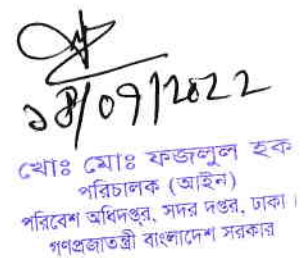 ১৪/07/2022
খোঃ মোঃ ফজলুল হক
পরিচালক (আইন)
পরিবেশ অধিদপ্তর, সদর দপ্তর, ঢাকা।
গণপ্রজাতন্ত্রী বাংলাদেশ সরকার